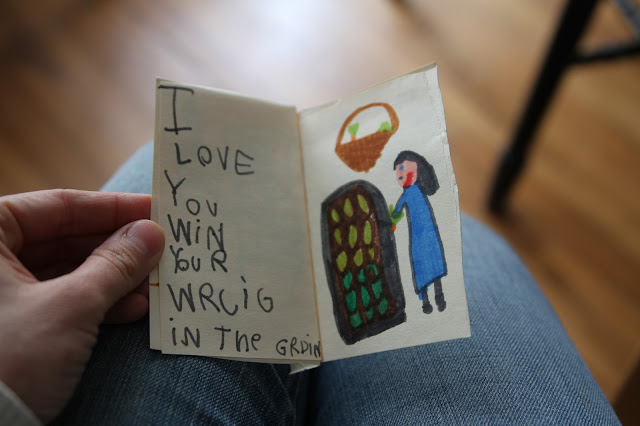 I
LOVE
YOU
WiN
YOUR
WRCiG
iN THe GRDiN